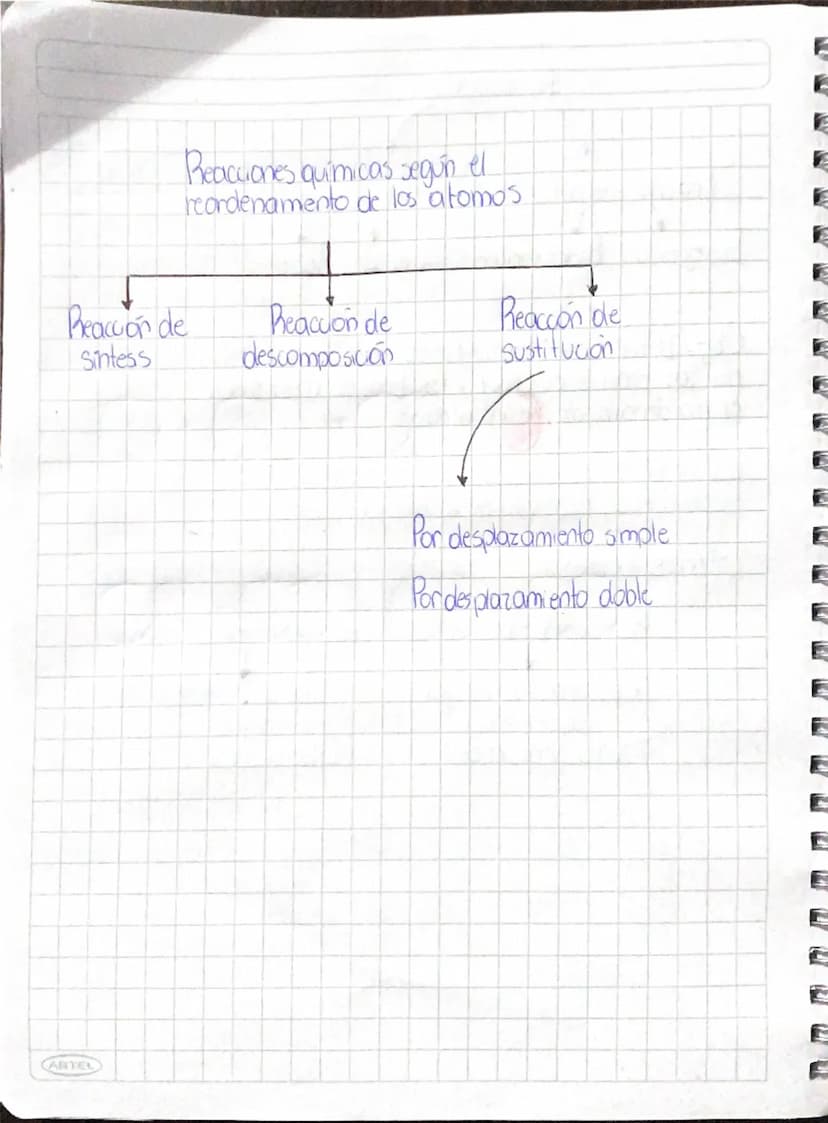 Reacciones químicas según el
reordenamiento de los atomos
Reacción de
síntesis
Reacción de
descomposición
Reacción de
sustitución
Por desplazamiento simple
Por desplazamiento doble
ARTEL